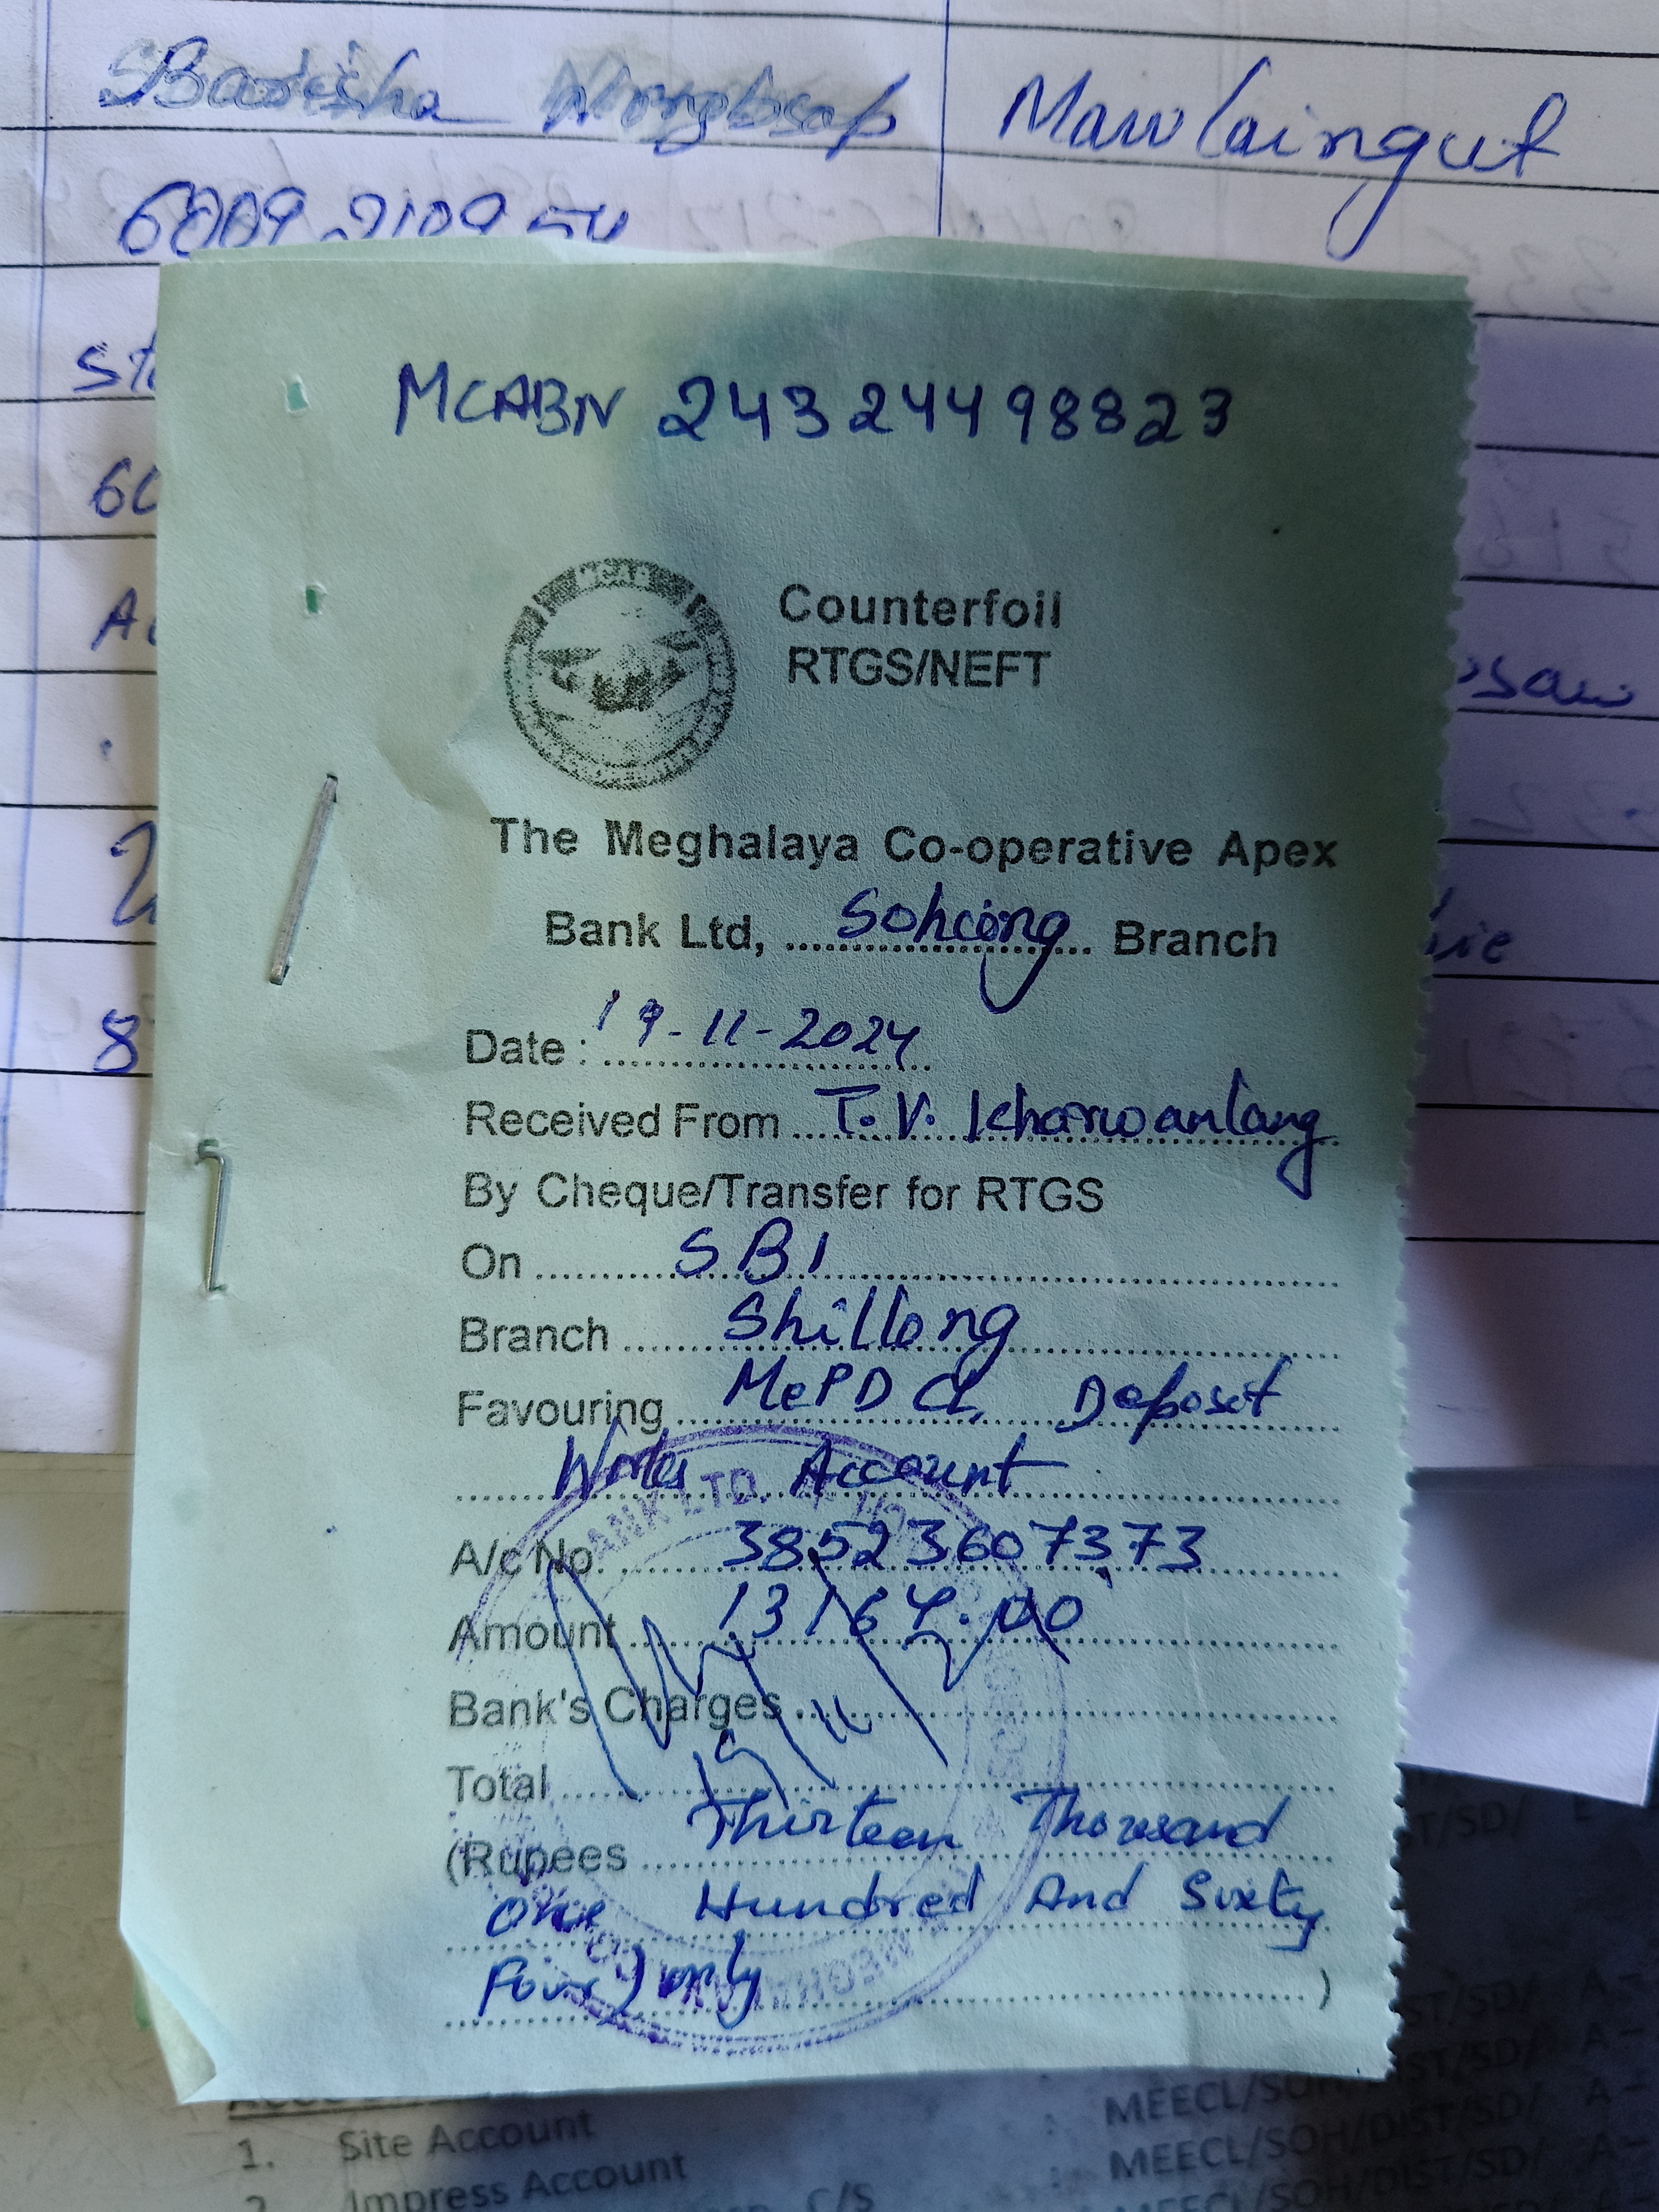 Mawlaingut
MCABN 24324498823
MCAB
Counterfoil
RTGS/NEFT
The Meghalaya Co-operative Apex
Bank Ltd, Sohiong Branch
Date : 19-11-2024
Received From T. V. Kharwanlang
By Cheque/Transfer for RTGS
On SBI
Branch Shillong
Favouring MePDCL Deposit
Account
A/c No. 38523607373
Amount 13164.00
Bank's Charges
19/11
Total
(Rupees Thirteen Thousand
One Hundred And Sixty
Four) only )
BANK LTD.
1. Site Account
MEECL/SOH/DIST/SD/ A-
2. Impress Account
MEECL/SOH/DIST/SD/ A-
C/S